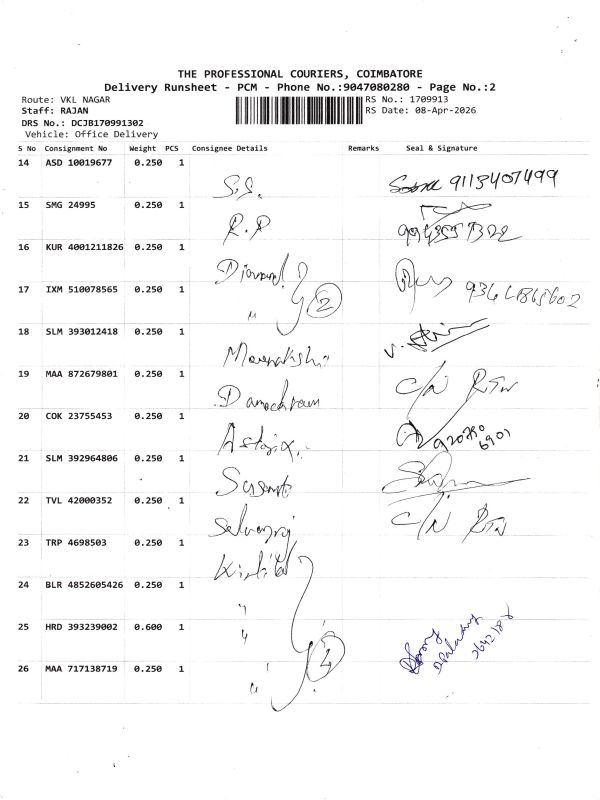 THE PROFESSIONAL COURIERS, COIMBATORE
Delivery Runsheet - PCM - Phone No.:9047080280 - Page No.:2
Route: VKL NAGAR
RS No.: 1709913
Staff: RAJAN
RS Date: 08-Apr-2026
DRS No.: DCJB170991302
Vehicle: Office Delivery
S No Consignment No Weight PCS Consignee Details Remarks Seal & Signature
14 ASD 10019677 0.250 1
S.S. 9113407499
15 SMG 24995 0.250 1
R.P
16 KUR 4001211826 0.250 1
Diamond
17 IXM 510078565 0.250 1
" 2
18 SLM 393012418 0.250 1
Meenakshi
19 MAA 872679801 0.250 1
C/N RTN
20 COK 23755453 0.250 1
21 SLM 392964806 0.250 1
22 TVL 42000352 0.250 1
C/N RTN
23 TRP 4698503 0.250 1
24 BLR 4852605426 0.250 1
"
25 HRD 393239002 0.600 1
"
26 MAA 717138719 0.250 1
" 4